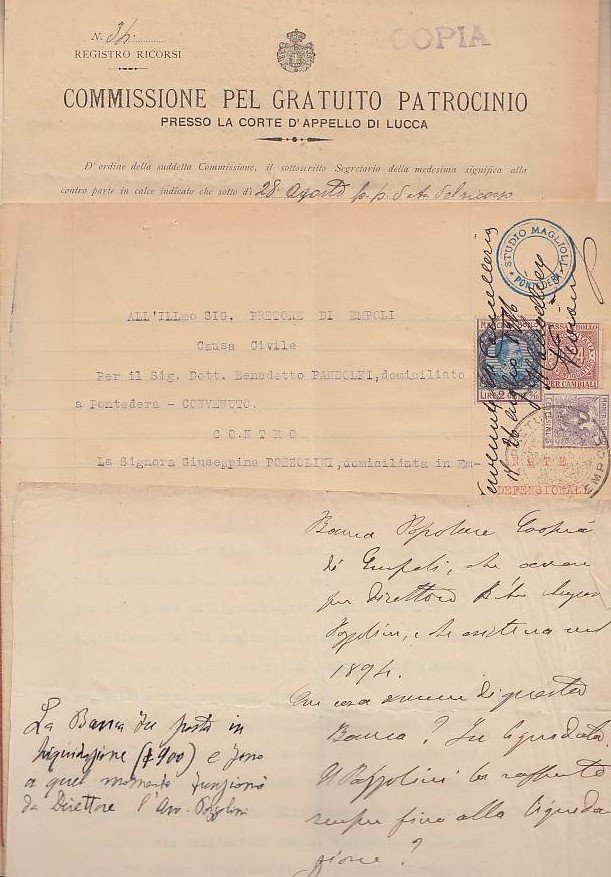 N. 34
REGISTRO RICORSI
COPIA
COMMISSIONE PEL GRATUITO PATROCINIO
PRESSO LA CORTE D'APPELLO DI LUCCA
D'ordine della suddetta Commissione, il sottoscritto Segretario della medesima significa alla
contro parte in calce indicato che sotto dì 28 Agosto p. p.
STUDIO MAGLIOLI
PONTEDERA
ALL'ILLmo SIG. PRETORE DI EMPOLI
Causa Civile
Per il Sig. Dott. Benedetto PANDOLFI, domiciliato
a Pontedera - CONVENUTO.
C O N T R O
La Signora Giuseppina POZZOLINI, domiciliata in Em-
LIRE 2
TASSA BOLLO
PER CAMBIALI
DEFENSIONALI
Banca Popolare
di Empoli, che
per direttore
Pozzolini, che esisteva nel
1894.
Che cosa avvenne di questa
Banca? Fu liquidata
Il Pozzolini la
sempre fino alla liquida
zione?
La Banca fu posta in
liquidazione (1900) e fino
a quel momento funzionò
da Direttore l'Avv. Pozzolini